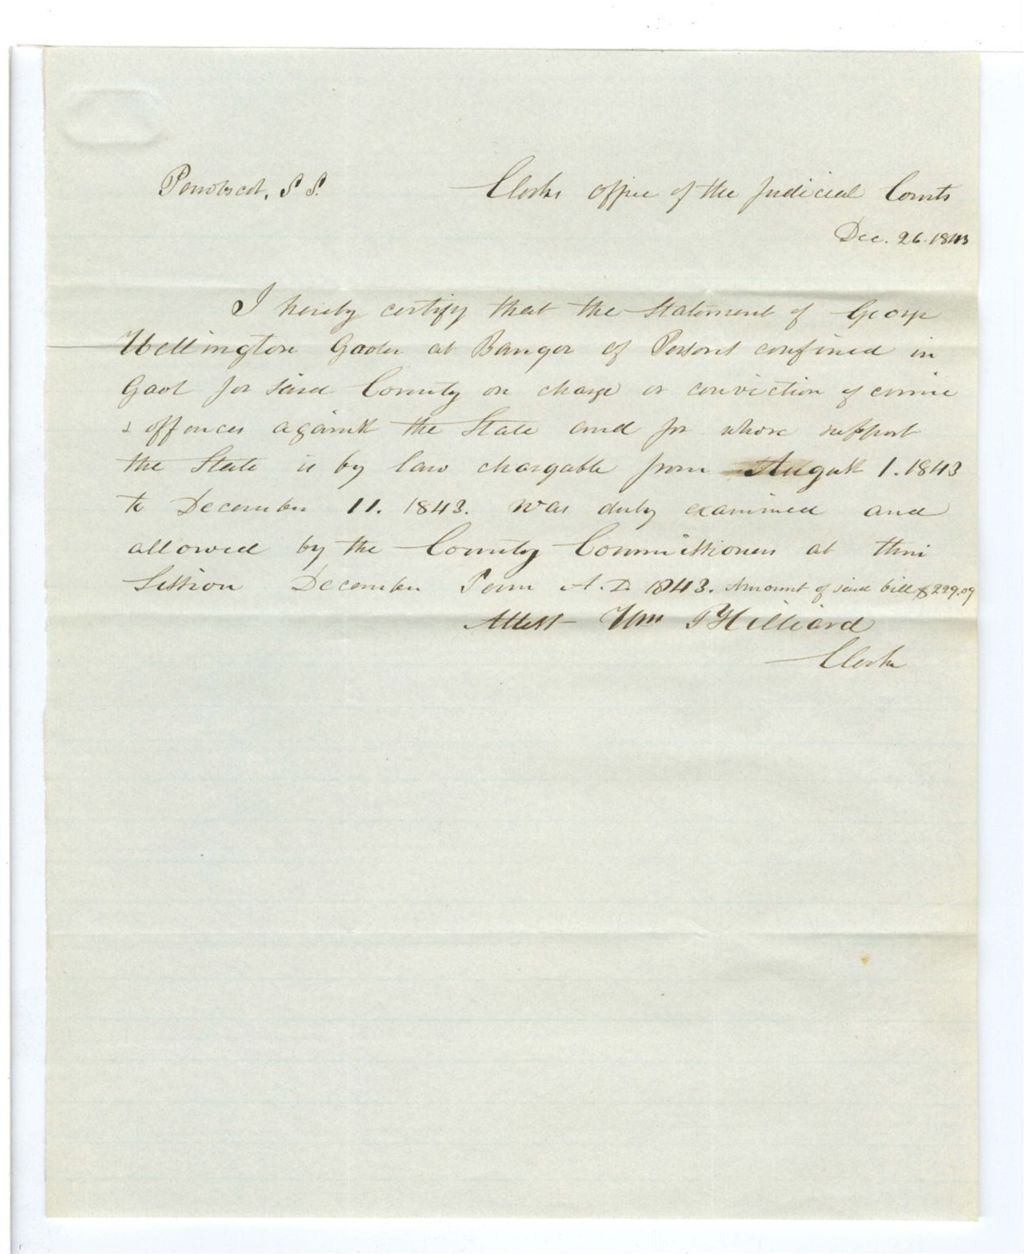 Penobscot, S S.
Clerks Office of the Judicial Courts
Dec. 26. 1843
I hereby certify that the Statement of George
Wellington Gaoler at Bangor of Persons confined in
Gaol for said County on charge or conviction of crime
& offences against the State and for whose support
the State is by law chargable from August 1. 1843
to December 11. 1843. was duly examined and
allowed by the County Commissioners at their
Session December Term A.D. 1843. Amount of said bill $229.09
Attest Wm T Hilliard
Clerk